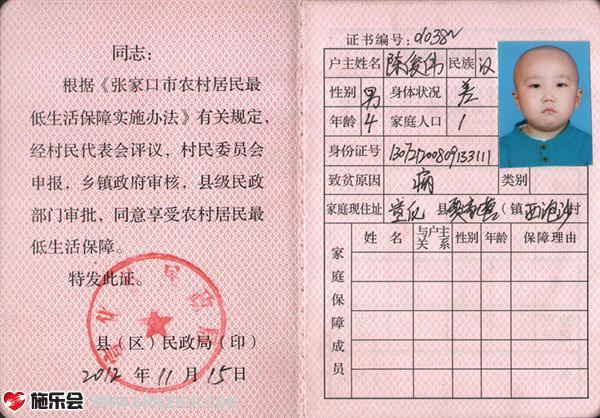 同志：
根据《张家口市农村居民最
低生活保障实施办法》有关规定，
经村民代表会评议，村民委员会
申报，乡镇政府审核，县级民政
部门审批，同意享受农村居民最
低生活保障。
特发此证。
县（区）民政局（印）
2012 年 11 月 15 日
施乐会
证书编号：
户主姓名 陈俊伟 民族 汉
性别 男 身体状况 差
年龄 4 家庭人口 1
身份证号 130721200809133111
致贫原因 病 类别
家庭现住址 宣化 县 贾家营（镇 西泡沙村
家庭保障成员
姓名 与户主关系 性别 年龄 保障理由